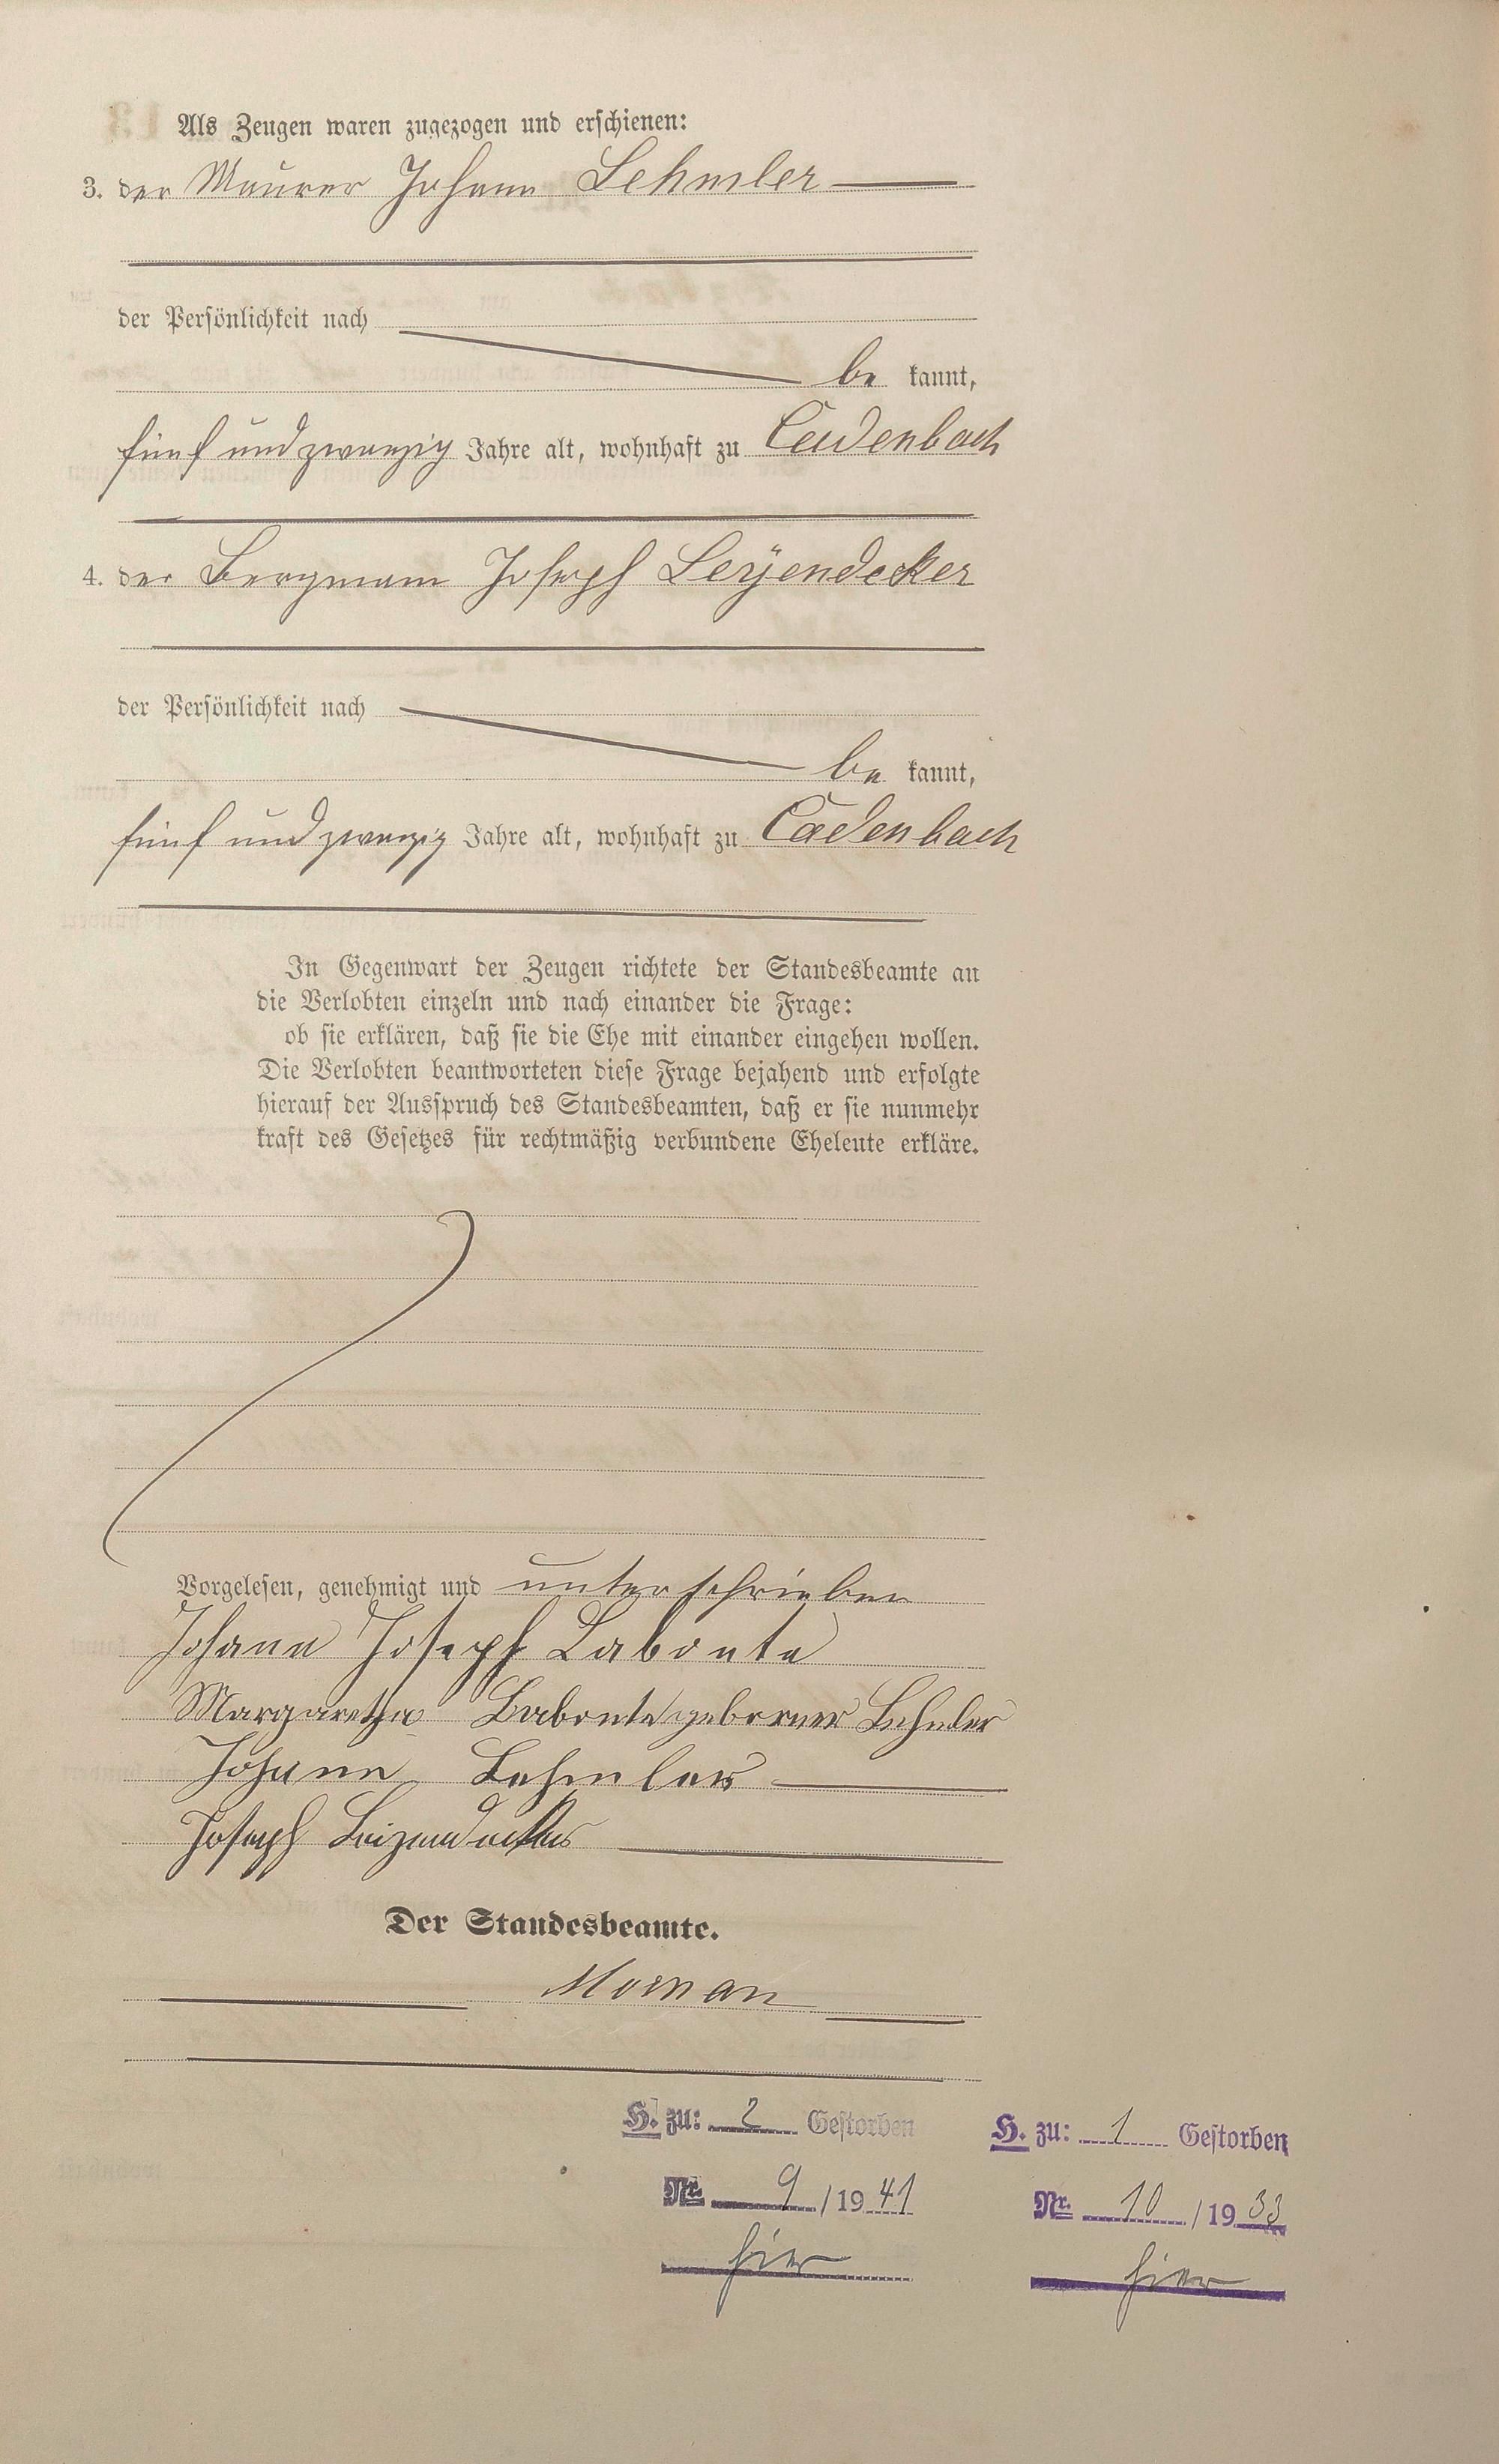 Als Zeugen waren zugezogen und erschienen:
3. der Maurer Johann Lehmler
der Persönlichkeit nach
be kannt,
fünf und zwanzig Jahre alt, wohnhaft zu Cadenbach
4. der Bergmann Joseph Leÿendecker
der Persönlichkeit nach
be kannt,
fünf und zwanzig Jahre alt, wohnhaft zu Cadenbach
In Gegenwart der Zeugen richtete der Standesbeamte an
die Verlobten einzeln und nach einander die Frage:
ob sie erklären, daß sie die Ehe mit einander eingehen wollen.
Die Verlobten beantworteten diese Frage bejahend und erfolgte
hierauf der Ausspruch des Standesbeamten, daß er sie nunmehr
kraft des Gesetzes für rechtmäßig verbundene Eheleute erkläre.
Vorgelesen, genehmigt und unterschrieben
Johann Joseph Labonte
Margaretha Labonte geborner Lehmler
Johann Lehmler
Joseph Leizendecker
Der Standesbeamte.
H. zu: 2 Gestorben
Nr. 9 / 1941
hier
H. zu: 1 Gestorben
Nr. 10 / 1933
hier